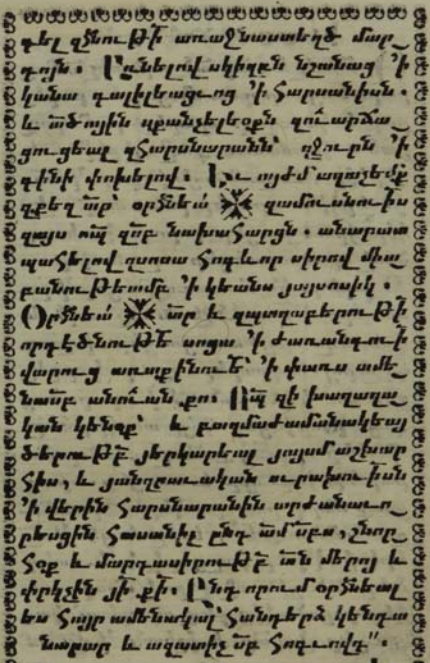 դել զծնութի առաջնաստեղծ մար_
դոյն։ Առնելով սկիզբն նշանաց ՚ի
կանա գալիլեացւոց ՚ի հարսանիսն.
և ածային սքանչելեօքն զուարճա_
ցուցեալ զհարսնարանն՝ զջուրն ՚ի
գինի փոխելով։ Եւ այժմ աղաչեմք
զքեզ տր՝ օրհնեա՛ զամուսնուիս
զայս որպ զսբ նախահարցն. անարատ
պահելով զսոսա հոգևոր սիրով միա_
բանութեամբ ՚ի կեանս յայսոսիկ.
Օրհնեա՛ տր և զպտղաբերութի
որդէծնութե սոցա ՚ի ժառանգուի
վարուց առաքինուե՝ ՚ի փառս ամե_
նասբ անուան քո։ Որպ զի խաղաղա_
կան կենօք՝ և բազմաժամանակեայ
ծերութբ յերկարեալ յայսմ աշխար_
հիս, և յանզրաւական ուրախուիսն
՚ի վերին հարսնարանին արժանաւո_
րեսցին հասանիլ ընդ ամ սբս, շնոր_
հօք և մարդասիրութբ տն մերոյ և
փրկչին յի քի։ Ընդ որում օրհնեալ
ես հայր ամենակալ՝ հանդերձ կենդա
նարար և ազատիչ սբ հոգւովդ։